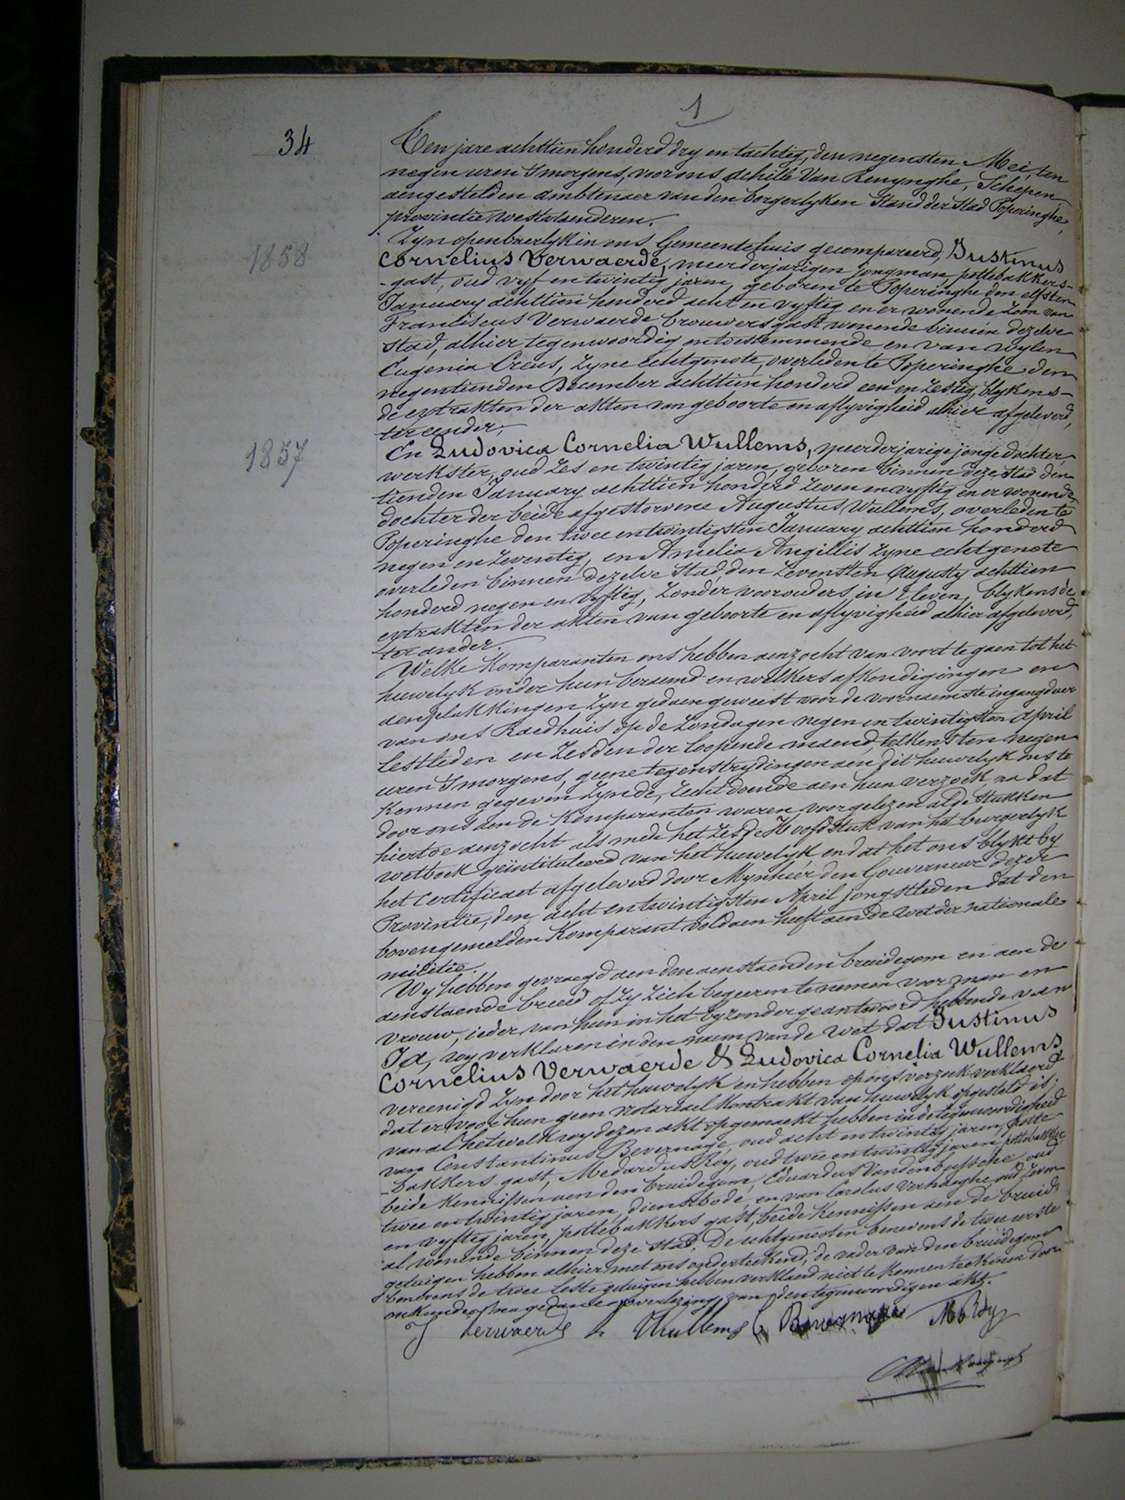 1
34
Ten jare achttien honderd dry en tachtig, den negensten Mei, ten
negen uren 's morgens, voor ons Achile Van Renynghe, Schepen
aengestelden ambtenaer van den borgerlyken Stand der Stad Poperinghe,
provintie Westvlanderen.
Zyn openbaerlyk in ons Gemeentehuis gecompareerd, Justinus
1858
Cornelius Verwaerde, meerderjarigen jongman, pottebakkers-
-gast, oud vyf en twintig jaren, geboren te Poperinghe den elfsten
January achttien honderd acht en vyftig en er wonende zoon van
Franciscus Verwaerde brouwersgast wonende binnen dezelve
Stad, alhier tegenwoordig en toestemmende en van wylen
Eugenia Creus, zyne echtgenote, overleden te Poperinghe den
negentienden December achttien honderd een en zestig, blykens-
de extrakten der akten van geboorte en aflyvigheid alhier afgeleverd,
ter eender;
1857
En Ludovica Cornelia Wullems, meerderjarige jonge dochter,
werkster, oud zes en twintig jaren, geboren binnen deze Stad den
tienden January achttien honderd zeven en vyftig en er wonende,
dochter der beide afgestorvene Augustus Wullems, overleden te
Poperinghe den twee en twintigsten January achttien honderd
negen en zeventig, en Amelia Angillis zyne echtgenote
overleden binnen dezelve Stad, den zevensten Augusty achttien
honderd negen en vyftig, zonder voorouders in Leven, blykens de
extrakten der akten van geboorte en aflyvigheid alhier afgeleverd,
ter ander.
Welke Komparanten ons hebben aenzocht van voort te gaen tot het
huwelyk onder hun beraemd en welkers afkondigingen en
aenplakkingen zyn gedaen geweest voor de voornaemste ingangdeur
van ons Raedhuis op de Zondagen negen en twintigsten April
lestleden en Zesden der loopende maend telkens ten negen
uren 's morgens, geene tegenstrydingen aen dit huwelyk ons te
Kennen gegeven zynde, recht doende aen hun verzoek na dat
door ons aen de Komparanten waren voorgelezen al de Stukken
hiertoe aenzocht als mede het zesde Hoofdstuk van het burgerlyk
wetboek geïntituleerd van het huwelyk en dat het ons blykt by
het Certificaet afgeleverd door Mynheer den Gouverneur dezer
Provintie, den acht en twintigsten April jongstleden dat den
bovengemelden Komparant voldaen heeft aen de wet der nationale
militie.
Wy hebben gevraegd aen den aenstaenden bruidegom en aen de
aenstaende bruid of zy zich begeeren te nemen voor man en
vrouw, ieder van hun in het byzonder geantwoord hebbende van
Ja, wy verklaren in den naem van de wet dat Justinus
Cornelius Verwaerde & Ludovica Cornelia Wullems
vereenigd zyn door het huwelyk en hebben op ons verzoek verklaerd
dat er voor hun geen notariael kontrakt van huwelyk opgesteld is;
van al hetwelk wy dezen akt opgemaekt hebben in de tegenwoordigheid
van Constantinus Bevernage, oud acht en twintig jaren, potte-
-bakkers gast, Medardus Roy, oud twee en twintig jaren, pottebakker
beide Kennissen aen den bruidegom, Eduardus Vandenbussche, oud
twee en twintig jaren, dienstbode en van Carolus Verhaeghe, oud zeven
en vyftig jaren, pottebakkers gast, beide Kennissen aen de bruid,
al wonende binnen deze Stad. De echtgenoten benevens de twee eerste
getuigen hebben alhier met ons onderteekend, de vader van den bruidegom
benevens de twee leste getuigen hebben verklaerd niet te kennen teekenen door
onkunde, stem gedaen voorlezing van den tegenwoordigen akt.
J Verwaerde L Wullems C Bevernage M Roy